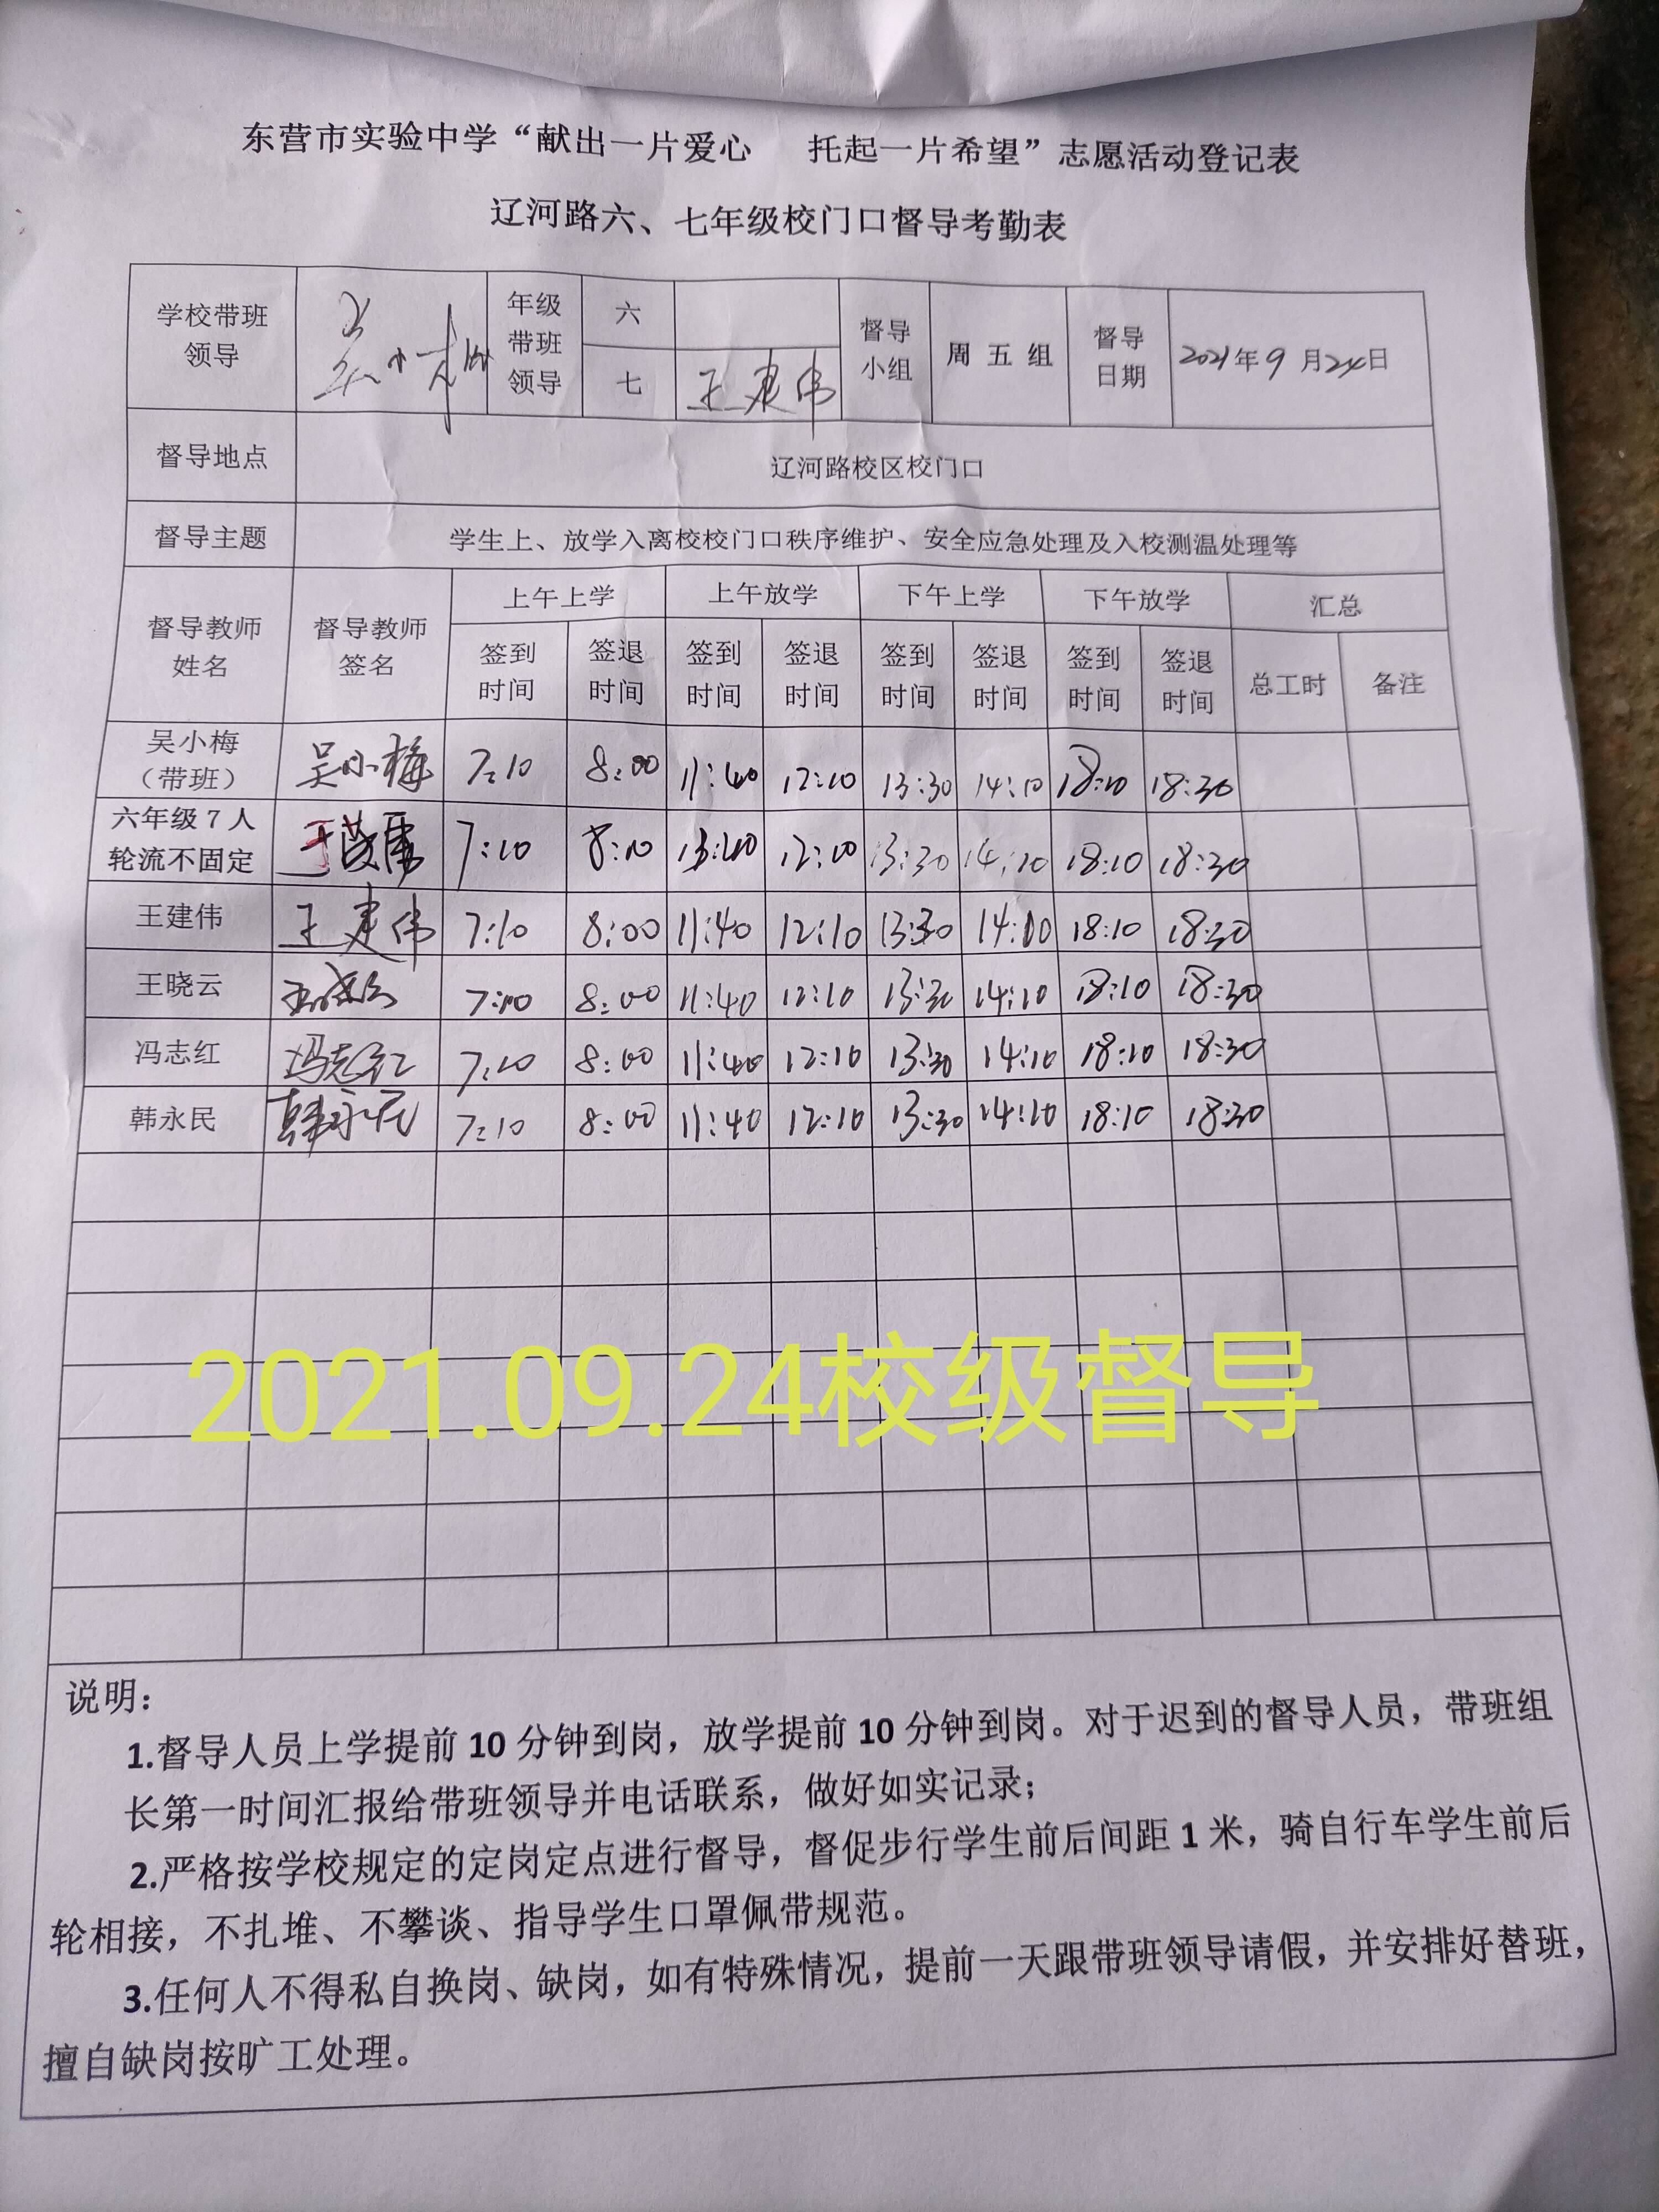 东营市实验中学“献出一片爱心 托起一片希望”志愿活动登记表
辽河路六、七年级校门口督导考勤表
学校带班领导 年级带班领导 六 七 王建伟 督导小组 周五组 督导日期 2021年9月24日
督导地点 辽河路校区校门口
督导主题 学生上、放学入离校校门口秩序维护、安全应急处理及入校测温处理等
督导教师姓名 督导教师签名 上午上学 上午放学 下午上学 下午放学 汇总
签到时间 签退时间 签到时间 签退时间 签到时间 签退时间 签到时间 签退时间 总工时 备注
吴小梅（带班） 吴小梅 7:10 8:00 11:40 12:10 13:30 14:10 18:10 18:30
六年级7人轮流不固定 7:10 13:30 14:10 18:10 18:30
王建伟 王建伟 7:10 8:00 11:40 12:10 13:30 14:10 18:10 18:30
王晓云 王晓云 8:00 11:40 12:10 13:30 14:10 18:10 18:30
冯志红 冯志红 7:10 8:00 11:40 12:10 13:30 14:10 18:10 18:30
韩永民 韩永民 7:10 8:00 11:40 12:10 13:30 14:10 18:10 18:30
2021.09.24校级督导
说明：
1.督导人员上学提前10分钟到岗，放学提前10分钟到岗。对于迟到的督导人员，带班组
长第一时间汇报给带班领导并电话联系，做好如实记录；
2.严格按学校规定的定岗定点进行督导，督促步行学生前后间距1米，骑自行车学生前后
轮相接，不扎堆、不攀谈、指导学生口罩佩带规范。
3.任何人不得私自换岗、缺岗，如有特殊情况，提前一天跟带班领导请假，并安排好替班，
擅自缺岗按旷工处理。